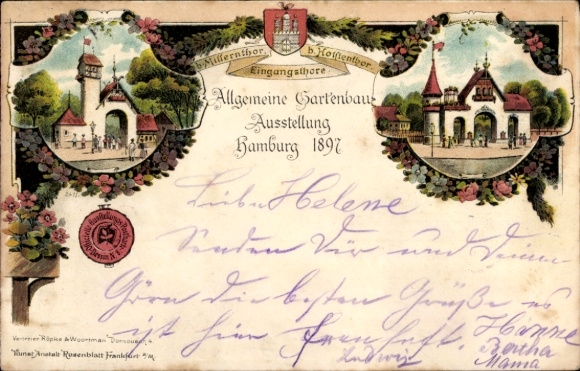 b. Millernthor.
b. Holstenthor.
Eingangsthore
Allgemeine Gartenbau
Ausstellung
Hamburg 1897
Liebe Helene
Senden Dir und Deinen
die besten Grüße es
ist hier
Ludwig
Hanne
Bertha
Mama
Vertreter Röpke & Woortman
Kunst Anstalt Rosenblatt Frankfurt a/M.